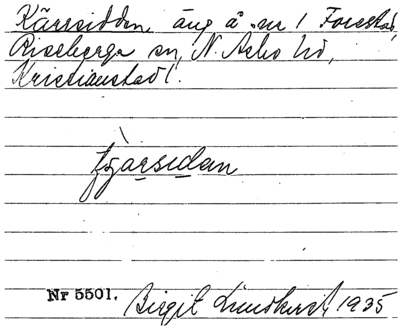 Kärrsidden, äng å nr 1 Forestad,
Riseberga sn, N. Åsbo hd,
Kristianstad l.
Nr 5501. Birgit Lundkvist, 1935